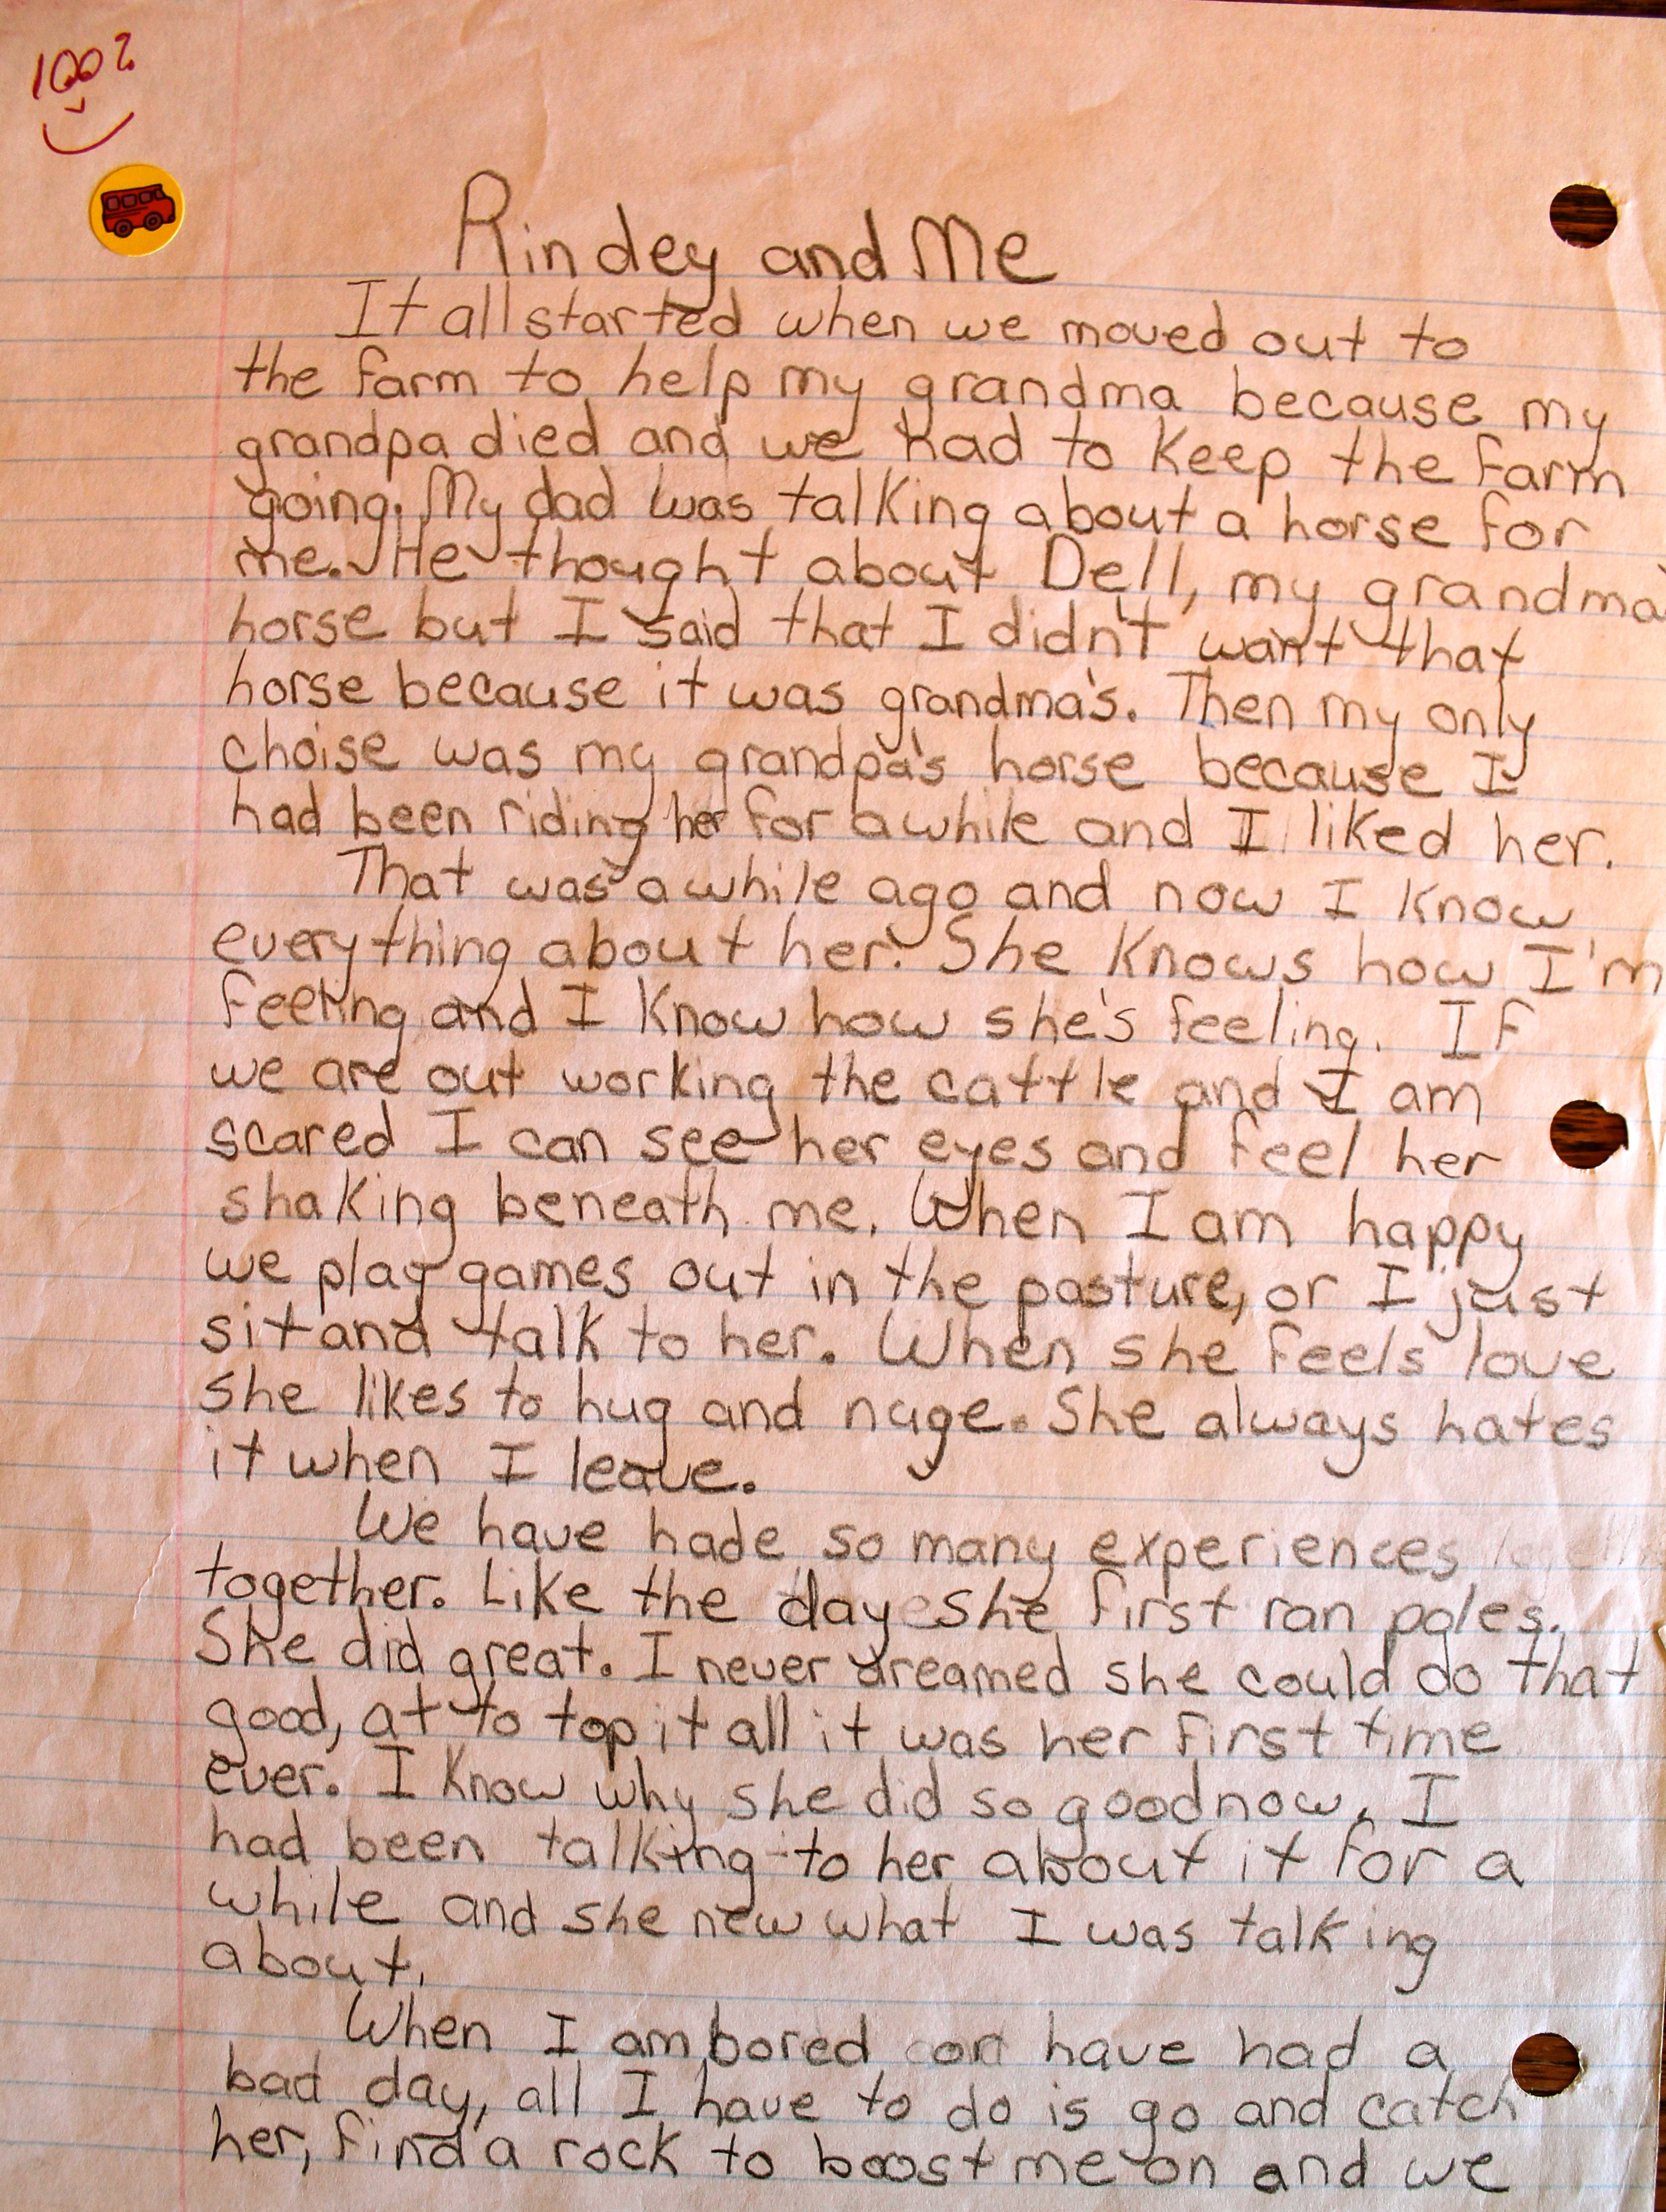 100%
Rindey and Me
It all started when we moved out to
the farm to help my grandma because my
grandpa died and we had to keep the farm
going. My dad was talking about a horse for
me. He thought about Dell, my grandma
horse but I said that I didn't want that
horse because it was grandma's. Then my only
choise was my grandpa's horse because I
had been riding her for awhile and I liked her.
That was awhile ago and now I know
everything about her. She knows how I'm
feeling and I know how she's feeling. If
we are out working the cattle and I am
scared I can see her eyes and feel her
shaking beneath me. When I am happy
we play games out in the pasture, or I just
sit and talk to her. When she feels love
she likes to hug and nuge. She always hates
it when I leave.
We have hade so many experiences
together. Like the day she first ran poles.
She did great. I never dreamed she could do that
good, at to top it all it was her first time
ever. I know why she did so good now. I
had been talking to her about it for a
while and she new what I was talking
about.
When I am bored or have had a
bad day, all I have to do is go and catch
her, find a rock to boost me on and we